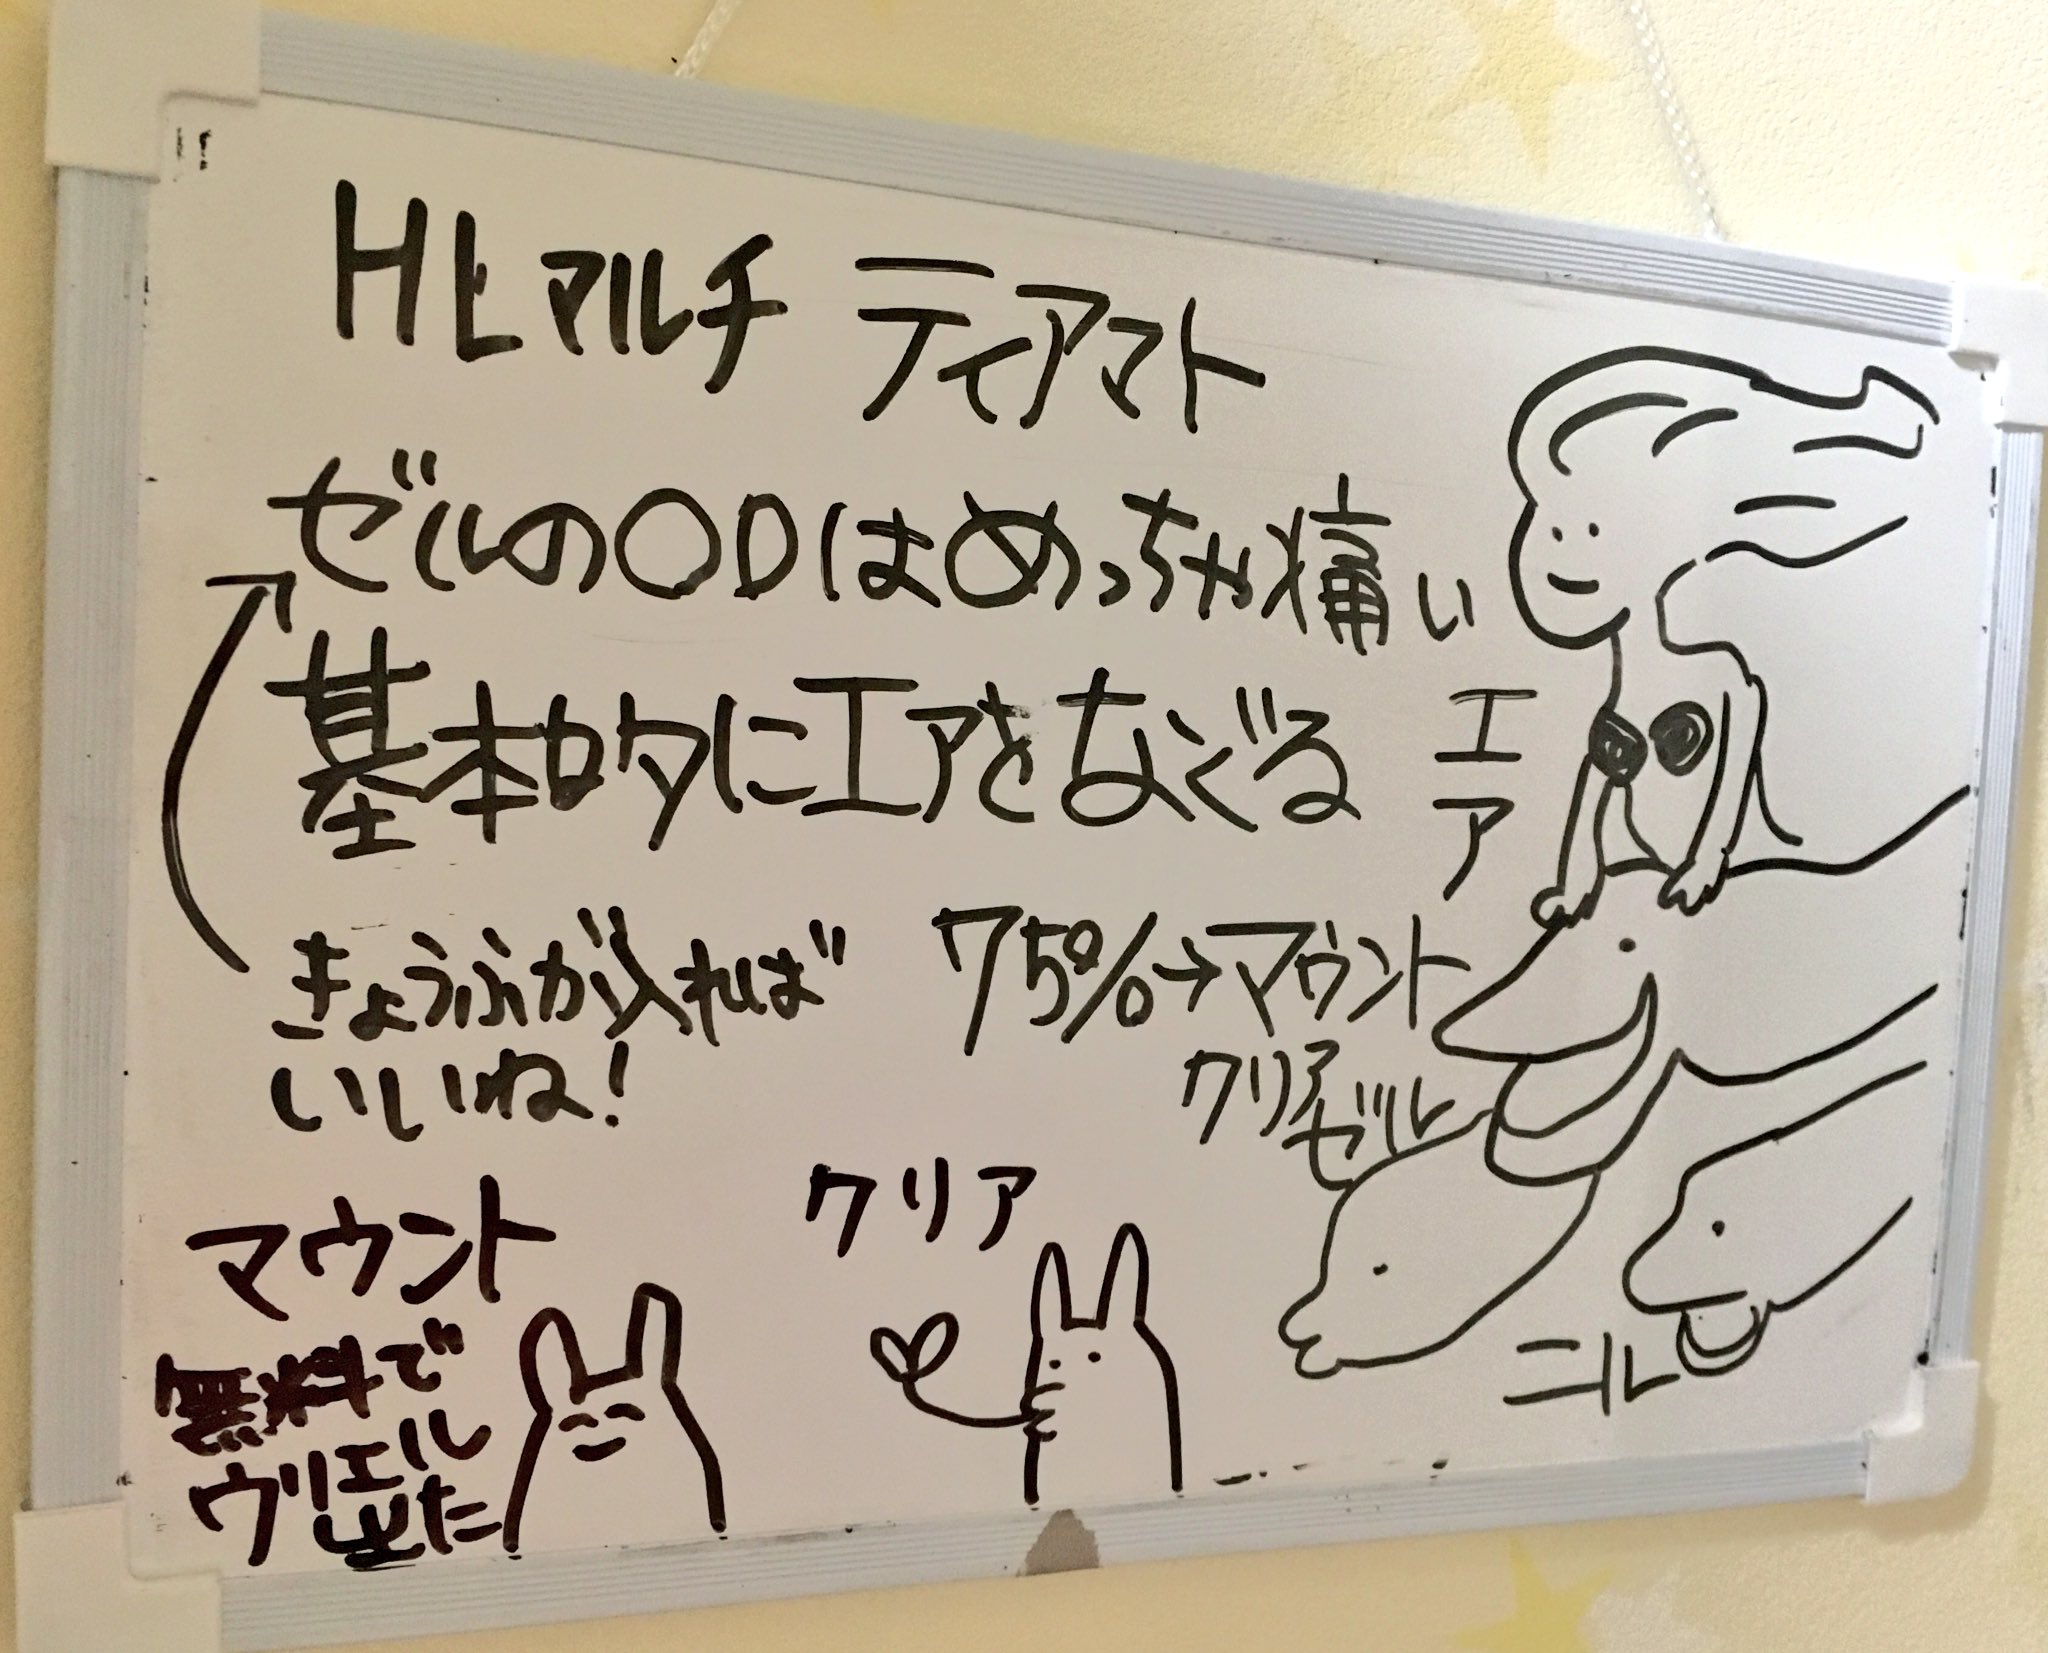 HLマルチ ティアマト
ゼルのODはめっちゃ痛い
基本的にエアをなぐる
エア
きょうふが入れば
いいね!
75%→マウント
クリア
ゼル
マウント
無料で
ウリエル
出た
クリア
ニル